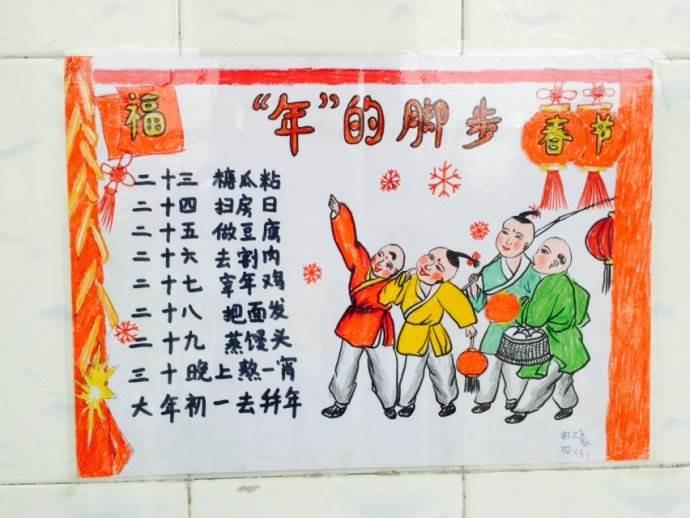 福
“年”的脚步
春节
二十三 糖瓜粘
二十四 扫房日
二十五 做豆腐
二十六 去割肉
二十七 宰年鸡
二十八 把面发
二十九 蒸馒头
三十晚上熬一宵
大年初一去拜年